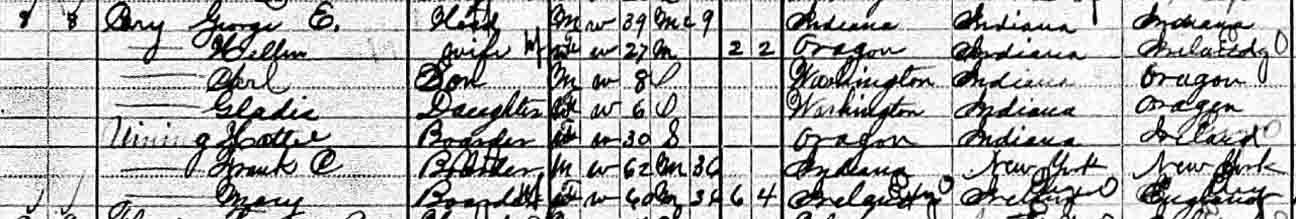 8 8 Bery George E. Head M W 39 M 9 Indiana Indiana Indiana
— Hellen Wife W 27 M 2 2 Oragon Indiana
— Son M W 8 S Washington Indiana Oragon
— Gladis Daughter W 6 S Washington Indiana Oragon
Hattie Boarder W 30 S Oragon Indiana Ireland
— Frank C Boarder M W 62 M 36 Indiana New York New York
— Mary Boarder W 60 M 36 6 4 England